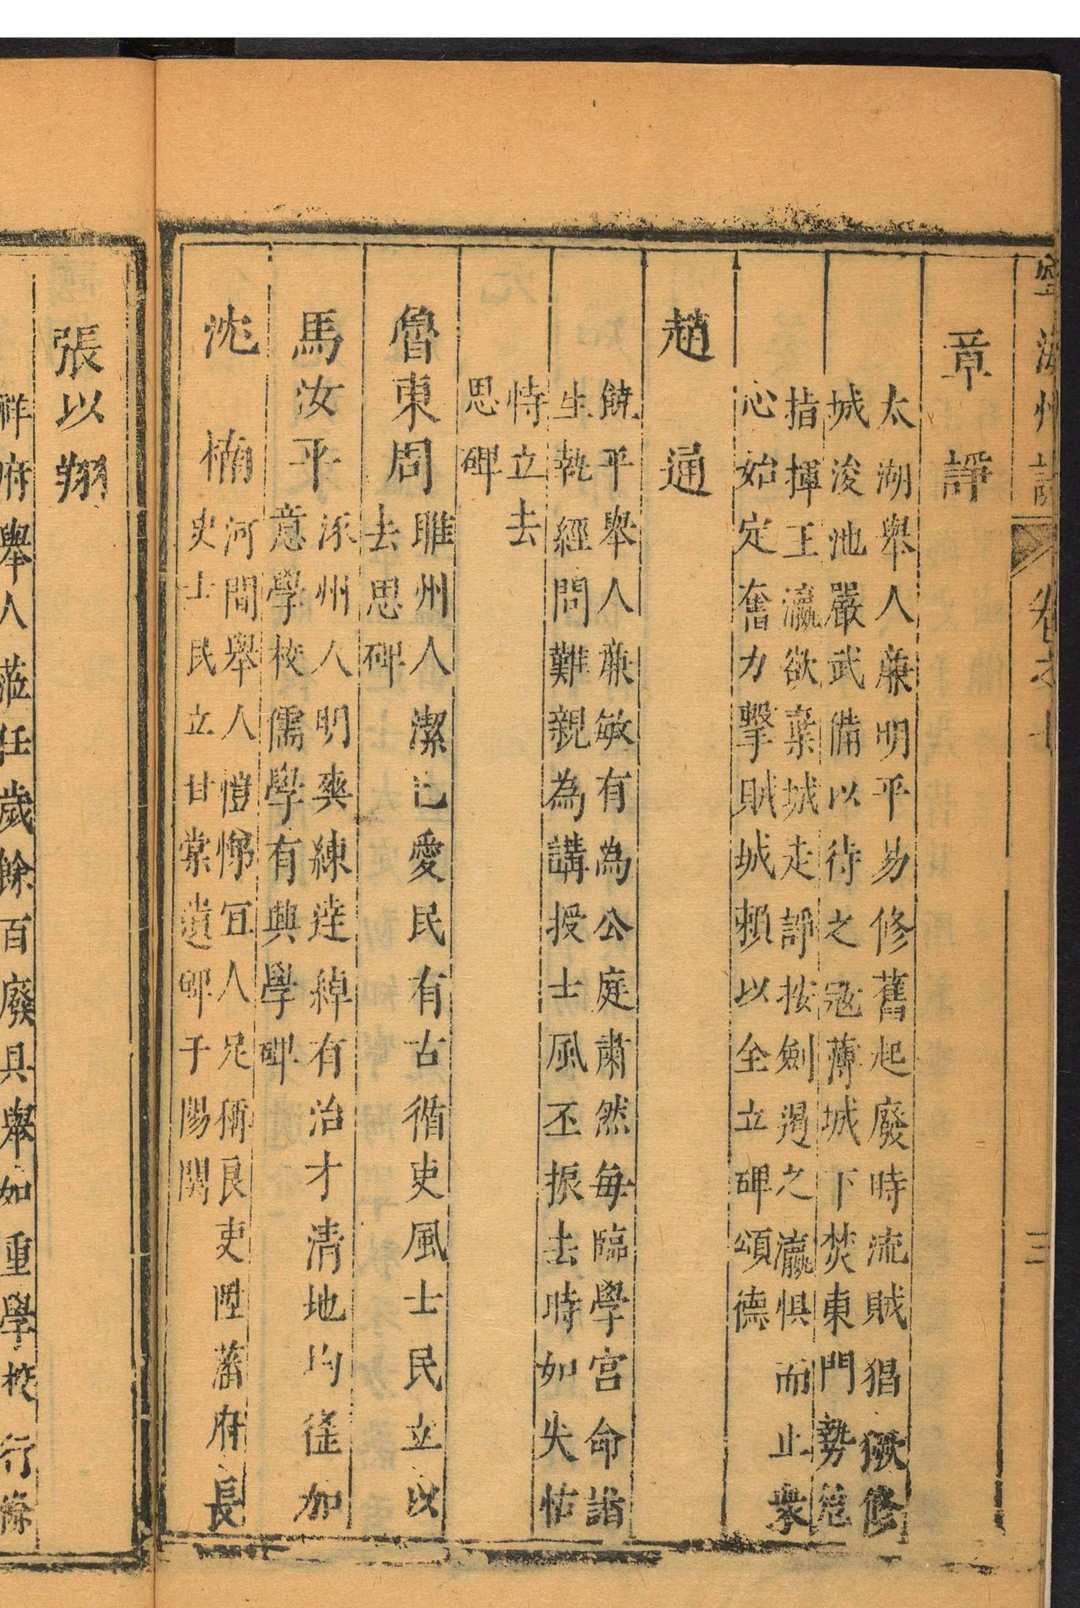 寧海州志 卷之七 三
章諍
太湖舉人廉明平易修舊起廢時流賊猖獗修
城浚池嚴武備以待之寇薄城下焚東門勢危
指揮王瀛欲棄城走諍按劍遏之瀛惧而止衆
心始定奮力擊賊城賴以全立碑頌德
趙通
饒平舉人廉敏有為公庭肅然每臨學宮命諸
生執經問難親為講授士風丕振去時如失怙
恃立去
思碑
魯東周
睢州人潔已愛民有古循吏風士民立以
去思碑
馬汝平
涿州人明爽練達綽有治才清地均徭加
意學校儒學有興學碑
沈楠
河間舉人愷悌宜人足稱良吏陞藩府長
史士民立甘棠遺碑于陽関
張以翔
祥府舉人蒞任歲餘百廢具舉如重學校行